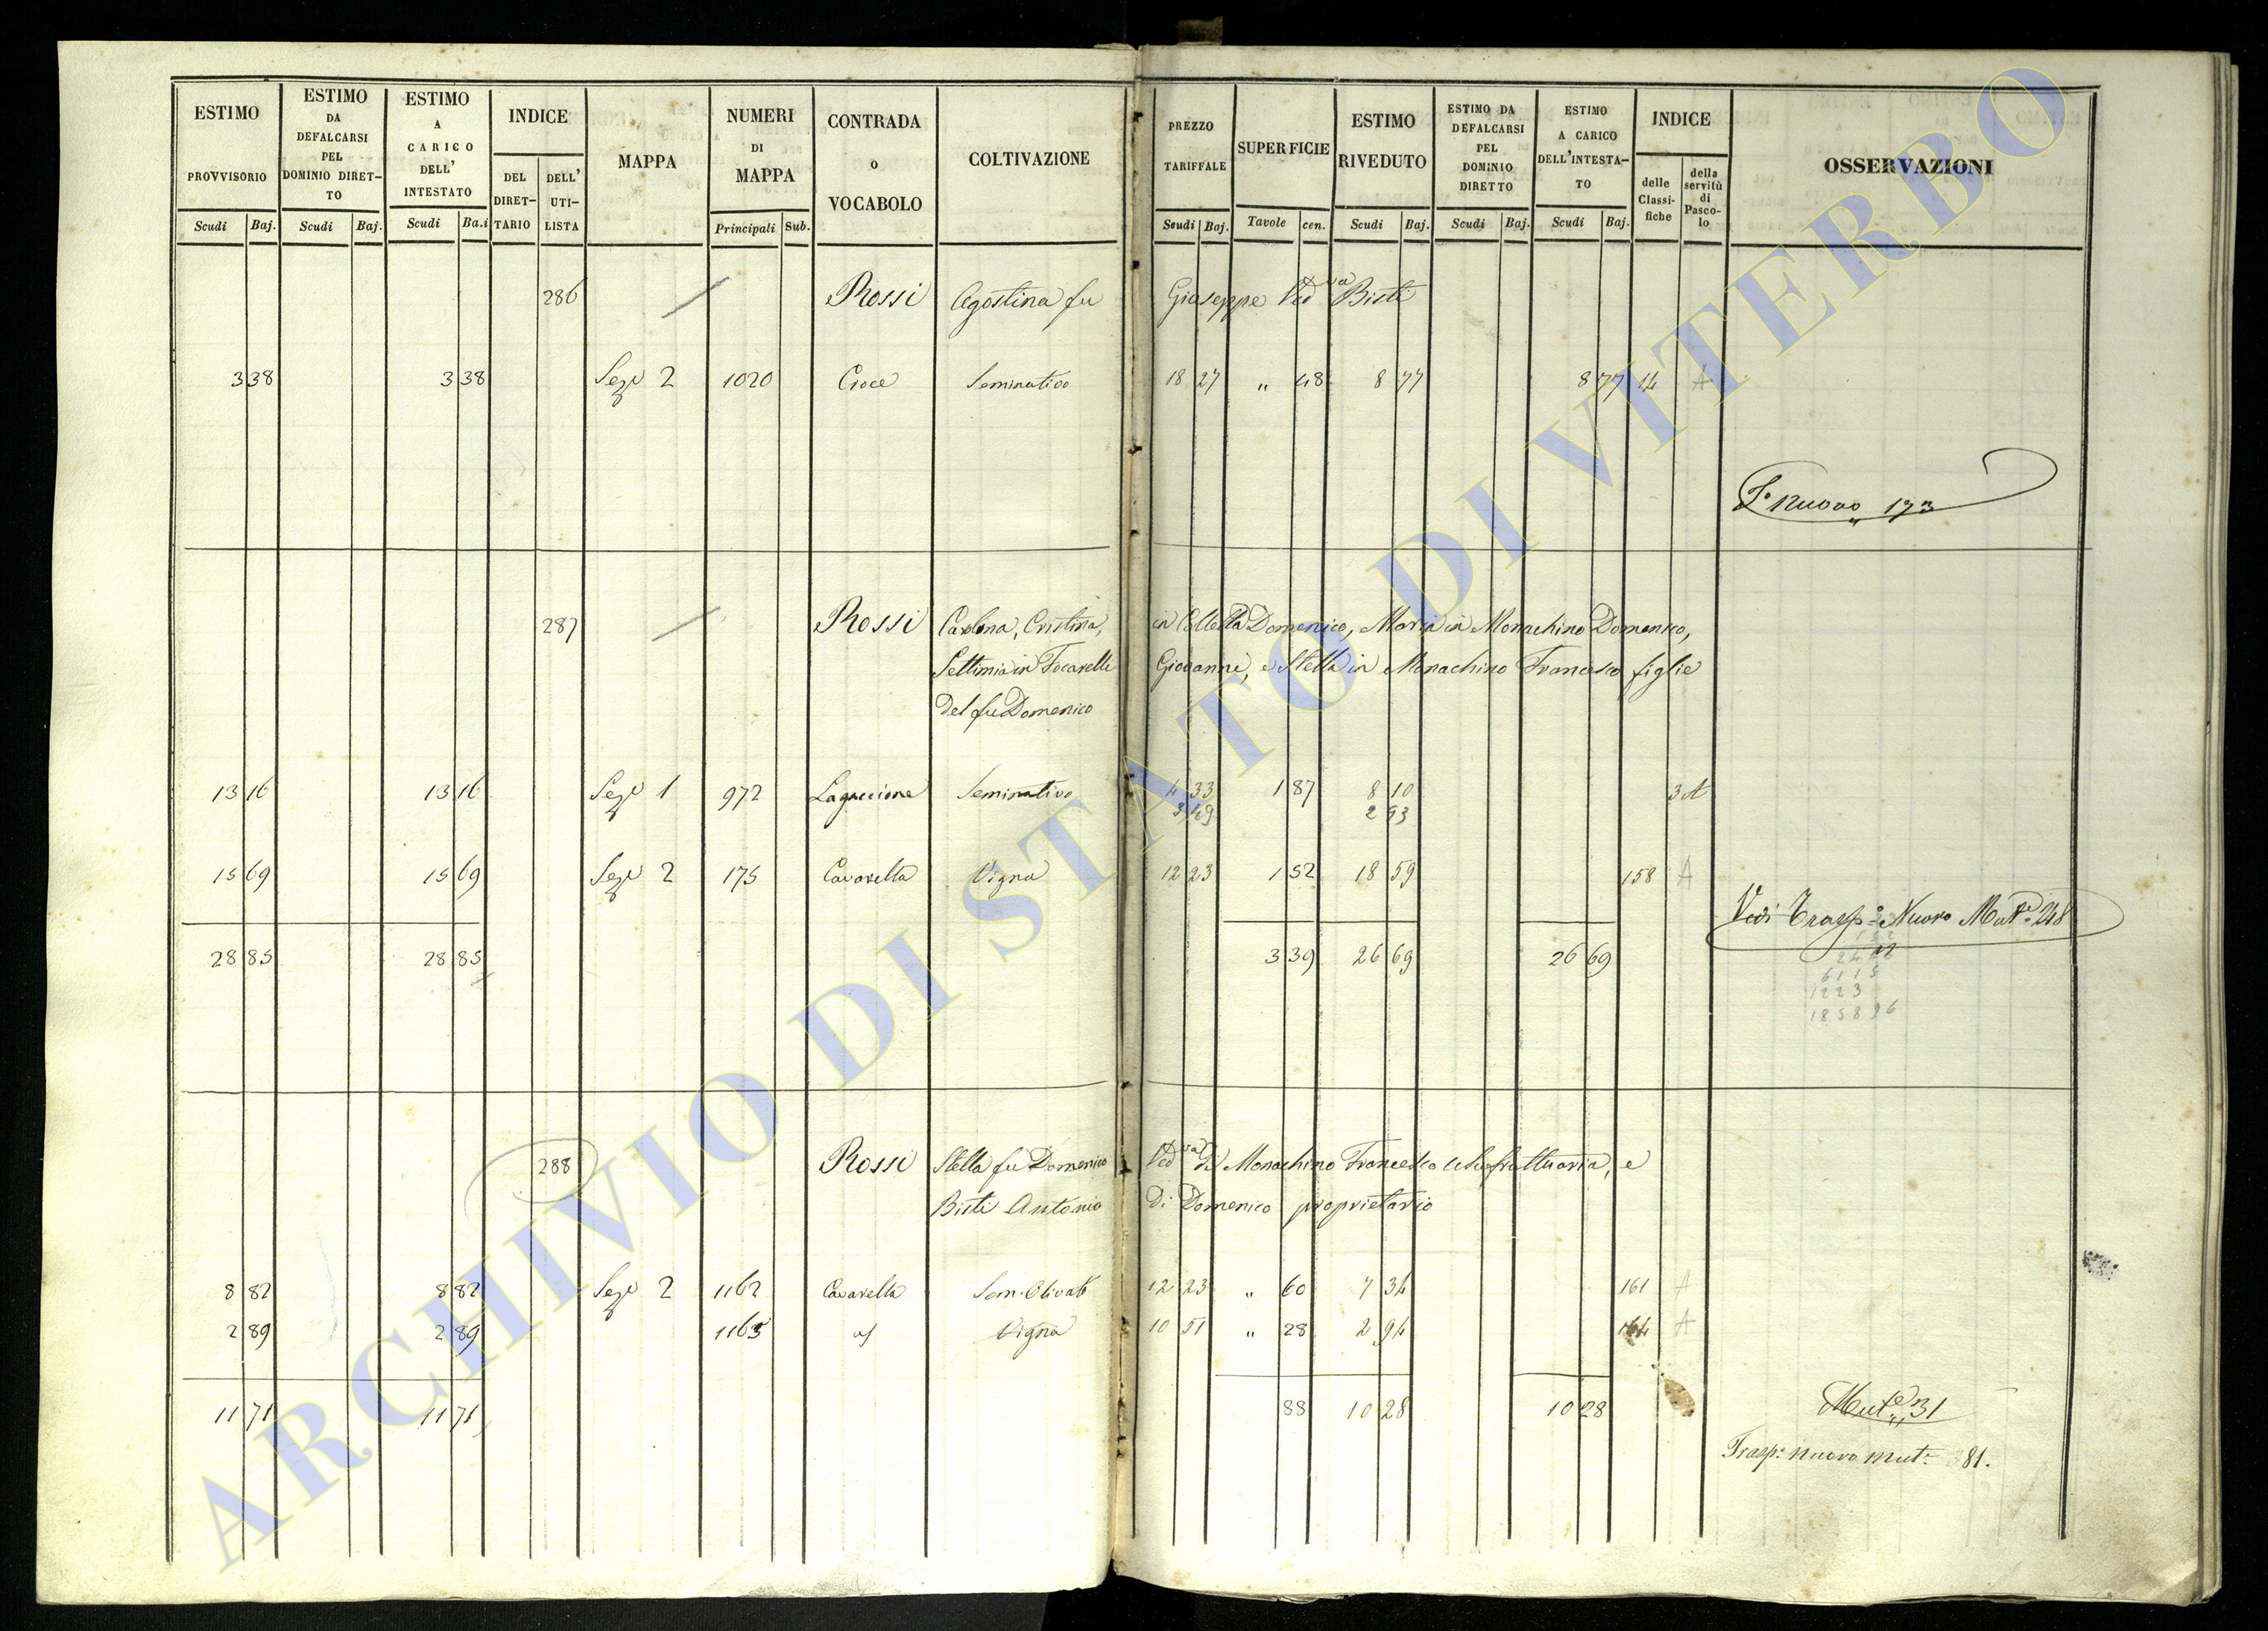 ESTIMO PROVVISORIO Scudi Baj.
ESTIMO DA DEFALCARSI PEL DOMINIO DIRET-TO Scudi Baj.
ESTIMO A CARICO DELL' INTESTATO Scudi Ba.i
INDICE DEL DIRET-TARIO DELL' UTI-LISTA
MAPPA
NUMERI DI MAPPA Principali Sub.
CONTRADA o VOCABOLO
COLTIVAZIONE
PREZZO TARIFFALE Scudi Baj.
SUPERFICIE Tavole cen.
ESTIMO RIVEDUTO Scudi Baj.
ESTIMO DA DEFALCARSI PEL DOMINIO DIRETTO Scudi Baj.
ESTIMO A CARICO DELL'INTESTA-TO Scudi Baj.
INDICE delle Classi-fiche della servitù di Pasco-lo
OSSERVAZIONI
286 Rossi Agostina fu Giuseppe Ved.va Bisti
3 38 3 38 Sez.e 2 1020 Croce Seminativo 18 27 " 48 8 77 8 77 14 A
F.o nuovo 173
287 Rossi Carolina, Cristina, in Colletta Domenico, Maria in Monachino Domenico,
Settimia in Focarelli Giovanni, e Stella in Monachino Francesco figlie
del fu Domenico
13 16 13 16 Sez.e 1 972 Lagaccione Seminativo 4 33 1 87 8 10 3 A
3 49 2 93
15 69 15 69 Sez.e 2 175 Cavarella Vigna 12 23 1 52 18 59 158 A
Vedi Trasp.o Nuovo Mut.e 248
28 85 28 85 3 39 26 69 26 69
6115
1223
185896
288 Rossi Stella fu Domenico Ved.va di Monachino Francesco Usufruttuaria, e
Bisti Antonio di Domenico proprietario
8 82 8 82 Sez.e 2 1162 Cavarella Sem. Olivato 12 23 " 60 7 34 161 A
2 89 2 89 1163 Vigna 10 51 " 28 2 94 164 A
11 71 11 71 88 10 28 10 28
Mut.e 31
Trasp.o nuovo mut.e 381.
ARCHIVIO DI STATO DI VITERBO